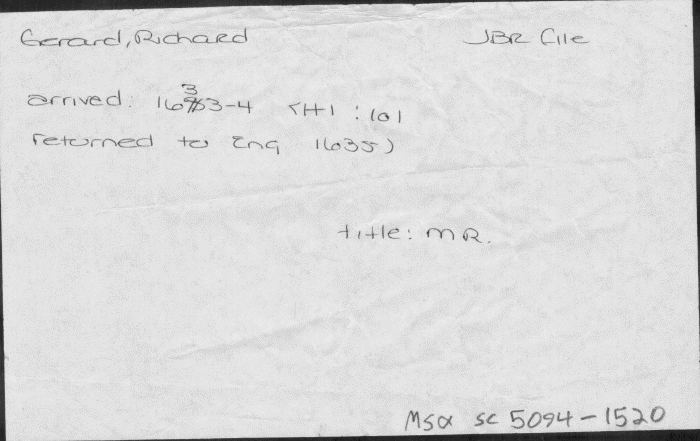 Gerard, Richard JBR File
arrived: 1633-4 <H1:101
returned to Eng 1635)
title: MR.
MSA SC 5094-1520